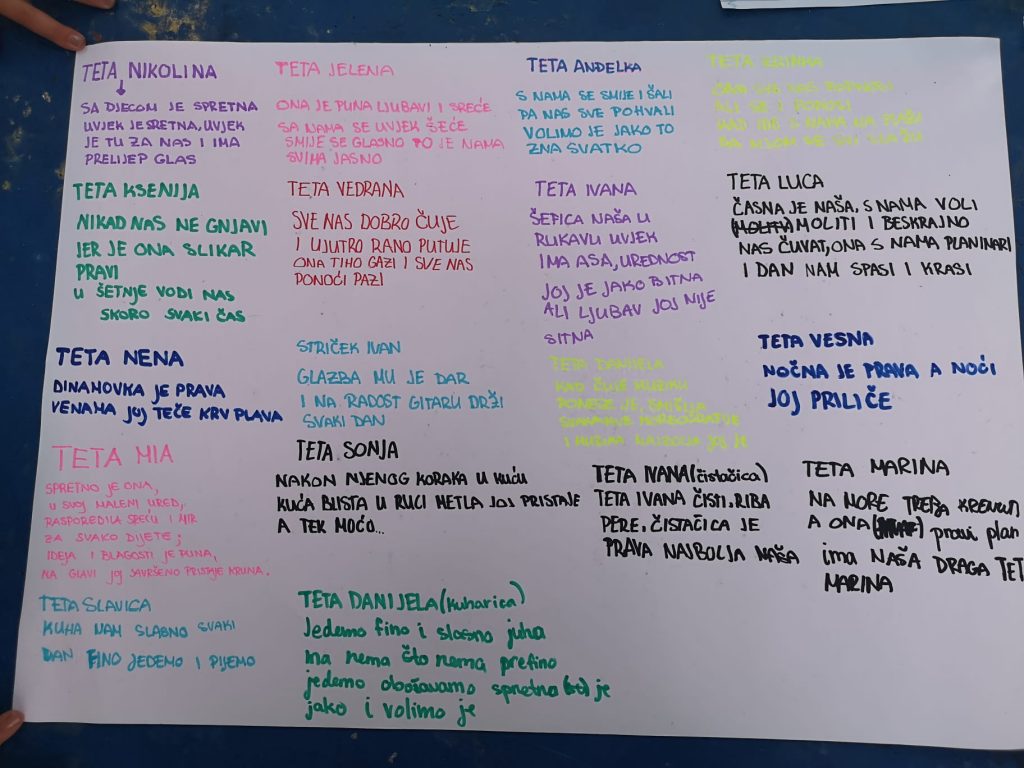 TETA NIKOLINA
SA DJECOM JE SPRETNA
UVJEK JE SRETNA, UVJEK
JE TU ZA NAS I IMA
PRELIJEP GLAS
TETA JELENA
ONA JE PUNA LJUBAVI I SREĆE
SA NAMA SE UVJEK ŠEĆE
SMIJE SE GLASNO TO JE NAMA
SVIMA JASNO
TETA ANĐELKA
S NAMA SE SMIJE I ŠALI
PA NAS SVE POHVALI
VOLIMO JE JAKO TO
ZNA SVATKO
TETA
ALI SE I
KAD IDE S NAMA NA
TETA KSENIJA
NIKAD NAS NE GNJAVI
JER JE ONA SLIKAR
PRAVI
U ŠETNJE VODI NAS
SKORO SVAKI ČAS
TETA VEDRANA
SVE NAS DOBRO ČUJE
I UJUTRO RANO PUTUJE
ONA TIHO GAZI I SVE NAS
PONOĆI PAZI
TETA IVANA
ŠEFICA NAŠA U
RUKAVU UVJEK
IMA ASA, UREDNOST
JOJ JE JAKO BITNA
ALI LJUBAV JOJ NIJE
SITNA
TETA LUCA
ČASNA JE NAŠA, S NAMA VOLI
MOLITI I BESKRAJNO
NAS ČUVAT, ONA S NAMA PLANINARI
I DAN NAM SPASI I KRASI
TETA NENA
DINAMOVKA JE PRAVA
VENAMA JOJ TEČE KRV PLAVA
STRIČEK IVAN
GLAZBA MU JE DAR
I NA RADOST GITARU DRŽI
SVAKI DAN
TETA DANIJELA
KAD ČUJE MUZIKU
PONESE JE,
KOREOGRAFIJE
I MUZIKA NAJBOLJA JOJ JE
TETA VESNA
NOĆNA JE PRAVA A NOĆI
JOJ PRILIČE
TETA MIA
SPRETNO JE ONA,
U SVOJ MALENI URED,
RASPOREDILA SREĆU I MIR
ZA SVAKO DIJETE;
IDEJA I BLAGOSTI JE PUNA,
NA GLAVI JOJ SAVRŠENO PRISTAJE KRUNA.
TETA SONJA
NAKON NJENOG KORAKA U KUĆU
KUĆA BLISTA U RUCI METLA JOJ PRISTAJE
A TEK MOĆO...
TETA IVANA (čistačica)
TETA IVANA ČISTI, RIBA
PERE. ČISTAČICA JE
PRAVA NAJBOLJA NAŠA
TETA MARINA
NA MORE TREBA KRENUTI
A ONA pravi plan
ima NAŠA DRAGA TET
MARINA
TETA SLAVICA
KUHA NAM SLASNO SVAKI
DAN FINO JEDEMO I PIJEMO
TETA DANIJELA (kuharica)
Jedemo fino i slasno juha
ma nema što nema prefino
jedemo obožavamo spretna je
jako i volimo je